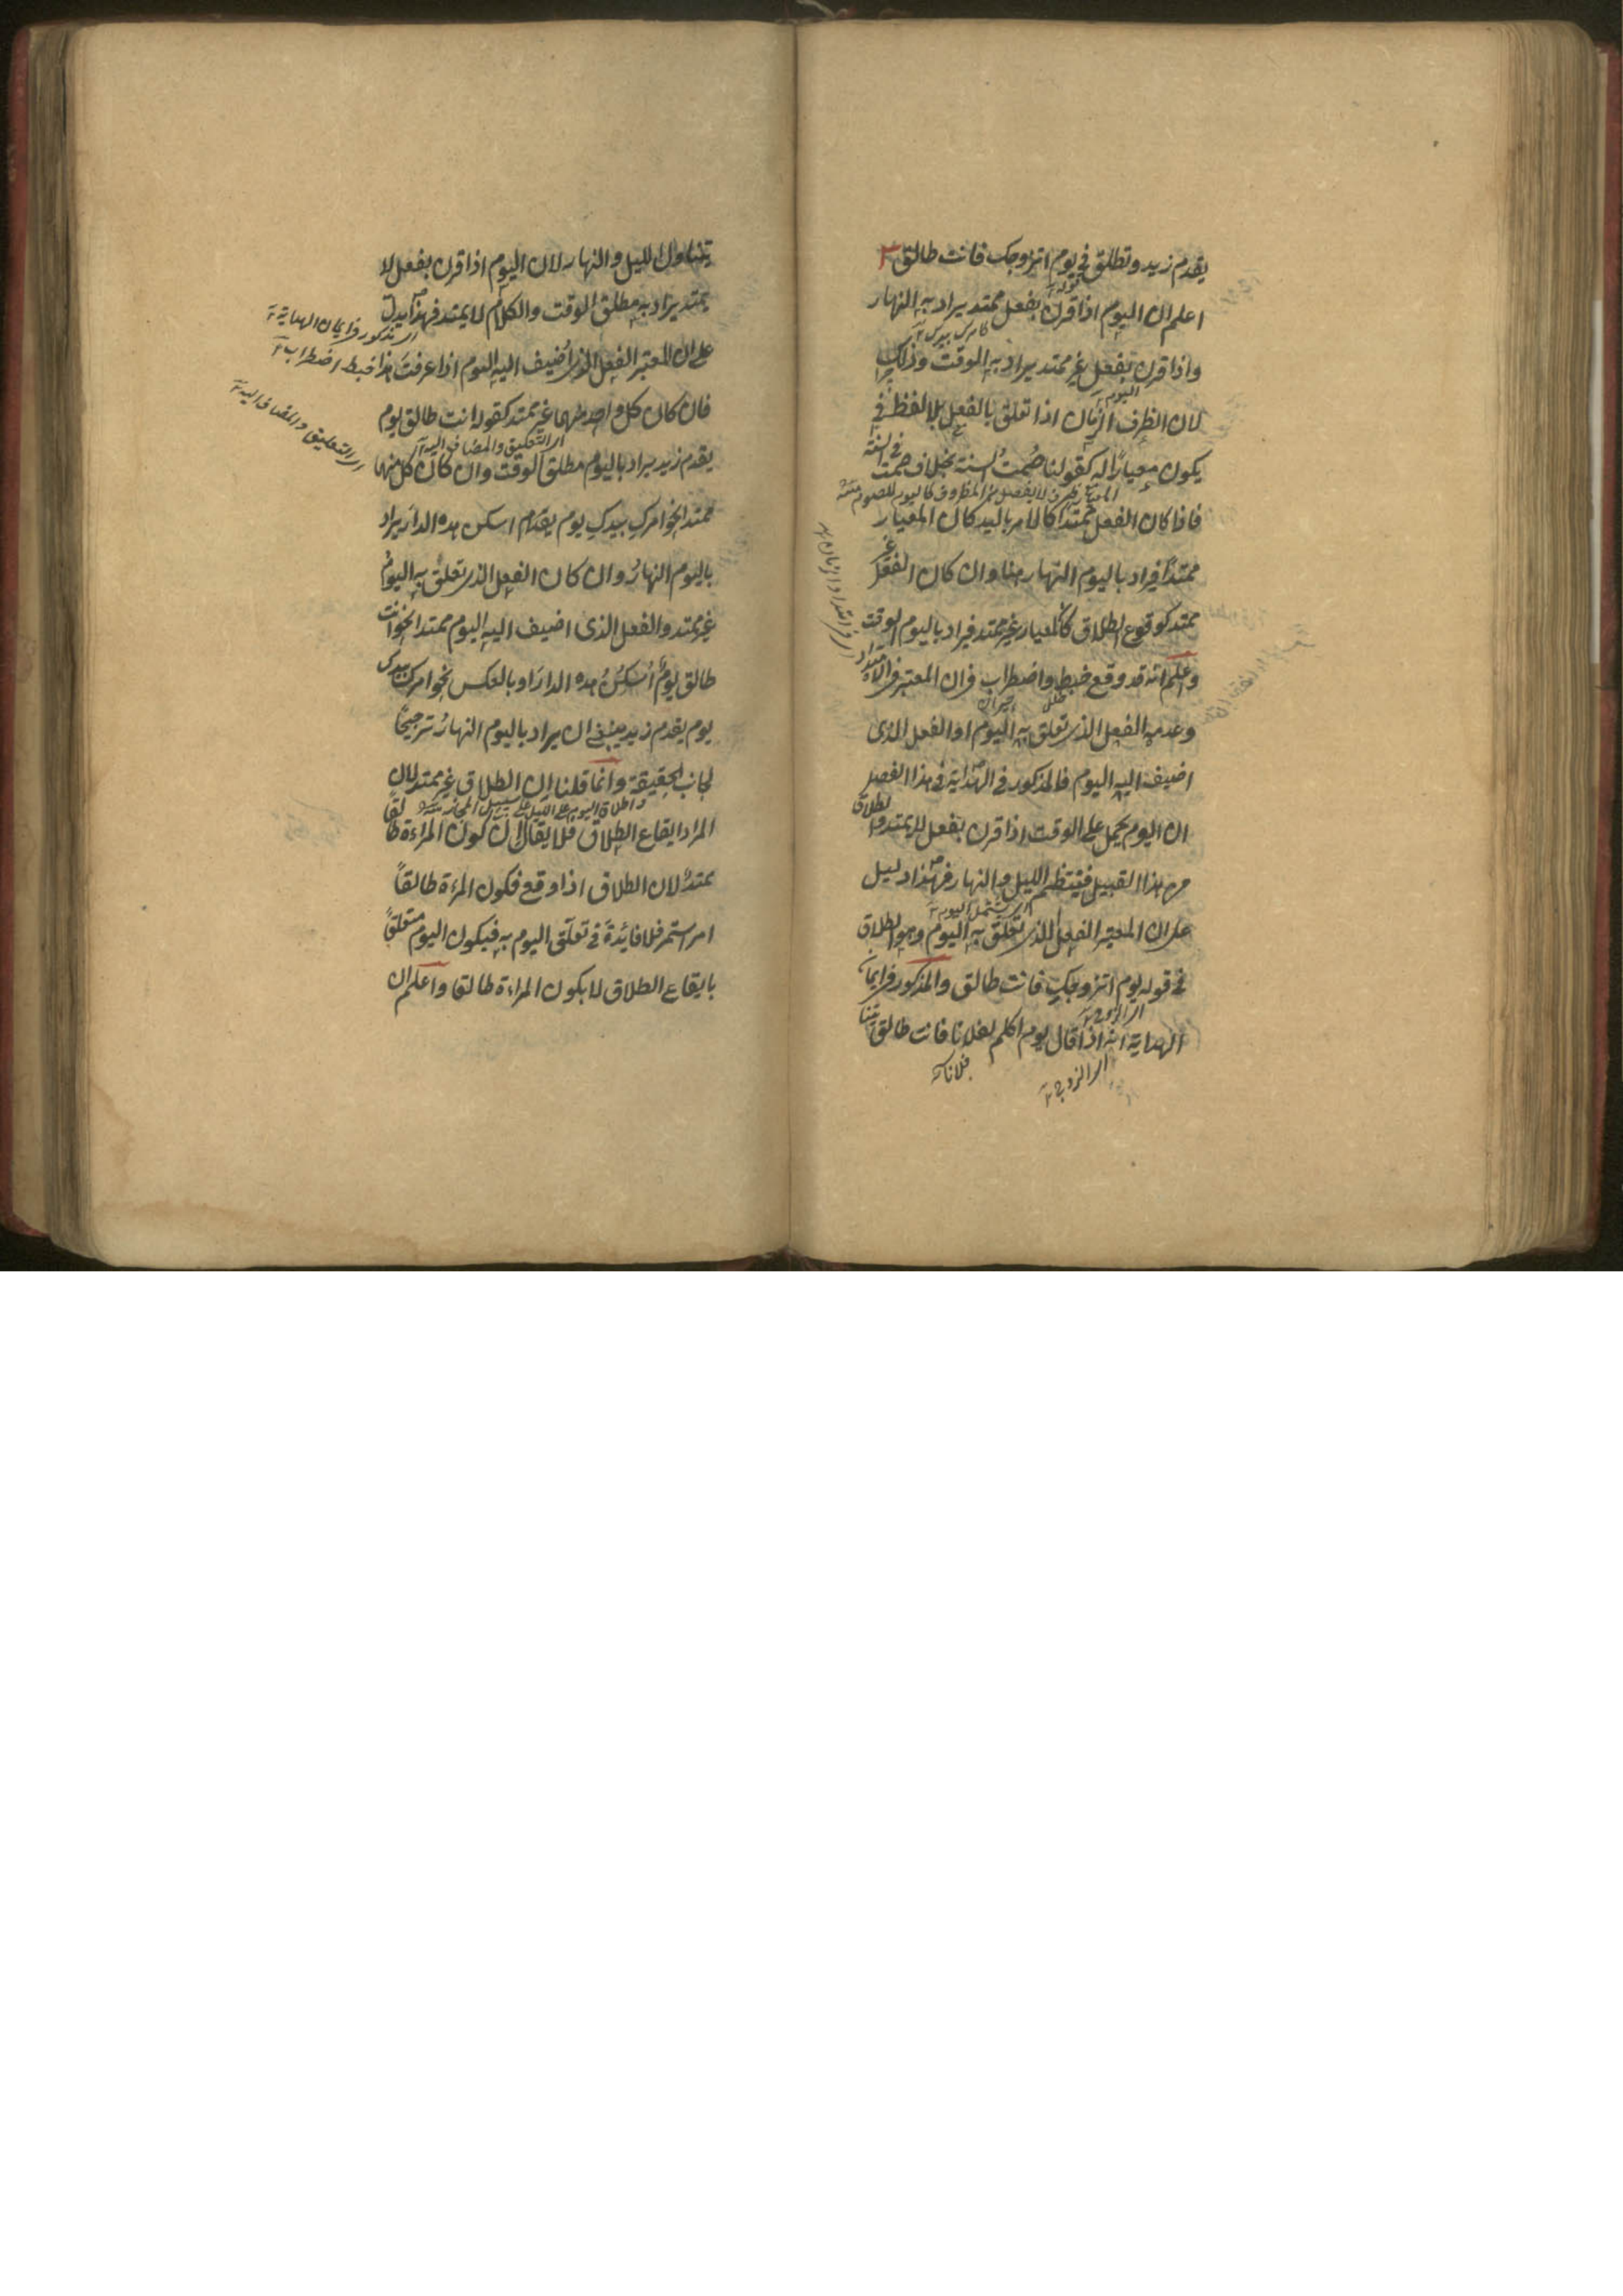 يقدم زيد وتطلق في يوم اتزوجك فانت طالق
اعلم ان اليوم اذا قرن بفعل ممتد يراد به النهار
واذا قرن بفعل غير ممتد يراد به الوقت وذلك
لان الظرف الزمان اذا تعلق بالفعل بلا لفظ في
يكون معيارًا له كقولنا صُمتُ السنة بخلاف صمت في السنة
فاذا كان الفعل ممتدا كالامر باليد كان المعيار
ممتدًا فيراد باليوم النهار هنا وان كان الفعل غير
ممتد كوقوع الطلاق كان المعيار غير ممتد فيراد باليوم الوقت
واعلم انه قد وقع خبط واضطراب في ان المعتبر في الامتداد
وعدمه الفعل الذي تعلق به اليوم او الفعل الذي
اضيف اليه اليوم فالمذكور في الهداية في هذا الفصل
ان اليوم يحمل على الوقت اذا قرن بفعل لا يمتد والطلاق
من هذا القبيل فينتظم الليل والنهار فهذا دليل
على ان المعتبر الفعل الذي تعلق به اليوم وهو الطلاق
في قوله يوم اتزوجكِ فانت طالق والمذكور في ايمان
الهداية انه اذا قال يوم اكلم فلانا فانت طالق
فلانا
اي التزوج
يتناول الليل والنهار لان اليوم اذا قرن بفعل لا
يمتد يراد به مطلق الوقت والكلام لا يمتد فهذا يدل
اي مذكور في ايمان الهداية
على ان المعتبر الفعل الذي اُضيف اليه اليوم اذا عرفت هذا خبط اضطراب
فان كان كل واحد منهما غير ممتد كقوله انت طالق يوم
اي التعليق والمضاف اليه
يقدم زيد يراد باليوم مطلق الوقت وان كان كل منهما
اي التعليق والمضاف اليه
ممتدا نحو امركِ بيدكِ يوم يقدم اسكن هذه الدار يراد
باليوم النهارُ وان كان الفعل الذي تعلق به اليوم
غير ممتد والفعل الذي اضيف اليه اليوم ممتدا نحو انت
طالق يوم اُسكنُ هذه الدارَ او بالعكس نحو امرك بيدك
يوم يقدم زيد ينبغي ان يراد باليوم النهارُ ترجيحًا
لجانب الحقيقة وانما قلنا ان الطلاق غير ممتد لان
واطلاق اليوم على الليل على سبيل المجاز
المراد ايقاع الطلاق فلا يقال ان كون المراءة طالقًا
يمتد لان الطلاق اذا وقع فكون المرءة طالقاً
امر استمر فلا فائدة في تعلق اليوم به فيكون اليوم متعلقًا
بايقاع الطلاق لا بكون المراءة طالقا واعلم ان